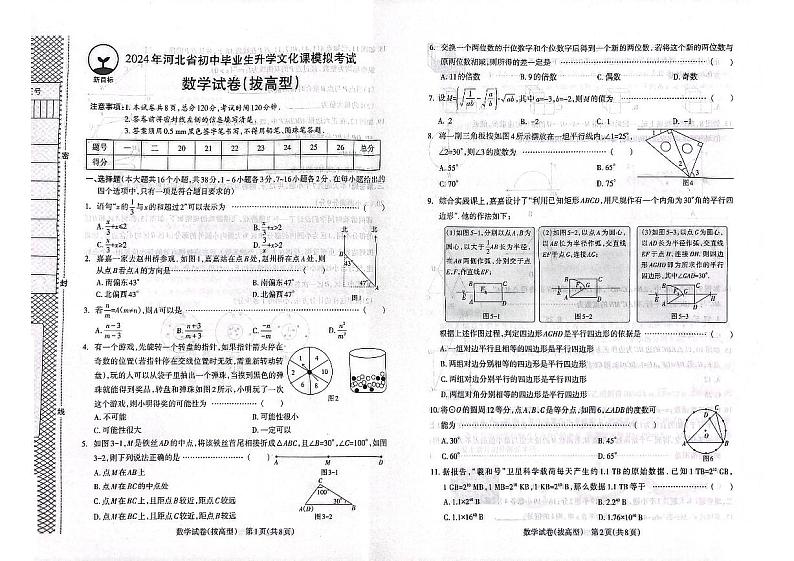 新目标
2024年河北省初中毕业生升学文化课模拟考试
数学试卷(拔高型)
注意事项:1.本试卷共8页,总分120分,考试时间120分钟.
2.答卷前将密封线左侧的信息填写清楚.
3.答案须用0.5 mm黑色签字笔书写,不得用铅笔、圆珠笔答题.
题号 一 二 20 21 22 23 24 25 26 总分
得分
密
封
线
一、选择题(本大题共16个小题,共38分,1~6小题各3分,7~16小题各2分.在每小题给出的
四个选项中,只有一项是符合题目要求的)
1. 语句"x的1/3与x的和超过2"可以表示为 ( )
A. x/3+x≤2 B. x/3+x≥2
C. x/3+x>2 D. 3/x+x>2
2. 嘉嘉一家去赵州桥参观,如图1,嘉嘉站在点B处,赵州桥在点A处,则
从点B看点A的方向是 ( )
A. 南偏东43° B. 南偏东47°
C. 北偏西43° D. 北偏西47°
北
北
B
43°
47°
A
图1
3. 若n/m=A(m≠n),则A可以是 ( )
A. n-3/m-3 B. n+3/m+3 C. -n/-m D. n²/m²
4. 有一个游戏,先旋转一个转盘的指针,如果指针箭头停在
奇数的位置(若指针停在交线位置时无效,需重新转动转
盘),玩的人可以从袋子里抽出一个弹珠,当摸到黑色的弹
珠就能得到奖品,转盘和弹珠如图2所示,小明玩了一次
这个游戏,则小明得奖的可能性为 ( )
A. 不可能 B. 可能性很小
C. 可能性很大 D. 一定可以
图2
5. 如图3-1,M是铁丝AD的中点,将该铁丝首尾相接折成△ABC,且∠B=30°,∠C=100°,如图
3-2,则下列说法正确的是 ( )
A. 点M在AB上
B. 点M在BC的中点处
C. 点M在BC上,且距点B较近,距点C较远
D. 点M在BC上,且距点C较近,距点B较远
A M D
图3-1
C
100°
30°
A(D) B
图3-2
数学试卷(拔高型) 第1页(共8页)
6. 交换一个两位数的十位数字和个位数字后得到一个新的两位数,若将这个新的两位数与
原两位数相减,则所得的差一定是 ( )
A. 11的倍数 B. 9的倍数 C. 偶数 D. 奇数
7. 设M=(√1/ab-√a/b)·√ab,其中a=-3,b=-2,则M的值为 ( )
A. 2 B. -2 C. 1 D. -1
8. 将一副三角板按如图4所示摆放在一组平行线内,∠1=25°,
∠2=30°,则∠3的度数为 ( )
A. 55° B. 65°
C. 70° D. 75°
1
2
3
图4
9. 综合实践课上,嘉嘉设计了"利用已知矩形ABCD,用尺规作有一个内角为30°角的平行四
边形".他的作法如下:
(1)如图5-1,分别以点A,B为
圆心,以大于1/2AB长为半径,
在AB两侧作弧,分别交于点
E,F,作直线EF;
图5-1
(2)如图5-2,以点A为圆心,
以AB长为半径作弧,交直线
EF于点G,连接AG;
图5-2
(3)如图5-3,以点G为圆心,
以AD长为半径作弧,交直线
EF于点H,连接DH,则四边
形AGHD即为所求作的平行
四边形,其中∠GAD=30°.
图5-3
根据上述作图过程,判定四边形AGHD是平行四边形的依据是 ( )
A. 一组对边平行且相等的四边形是平行四边形
B. 两组对边分别相等的四边形是平行四边形
C. 两组对边分别平行的四边形是平行四边形
D. 两组对角分别相等的四边形是平行四边形
10. 将⊙O的圆周12等分,点A,B,C是等分点,如图6,∠ADB的度数可
能为 ( )
A. 30° B. 45°
C. 60° D. 65°
图6
11. 据报告,"羲和号"卫星科学载荷每天产生约1.1 TB的原始数据.已知1 TB=2¹⁰ GB,
1 GB=2¹⁰ MB,1 MB=2¹⁰ KB,1 KB=2¹⁰ B,那么数据1.1 TB等于 ( )
数学试卷(拔高型) 第2页(共8页)